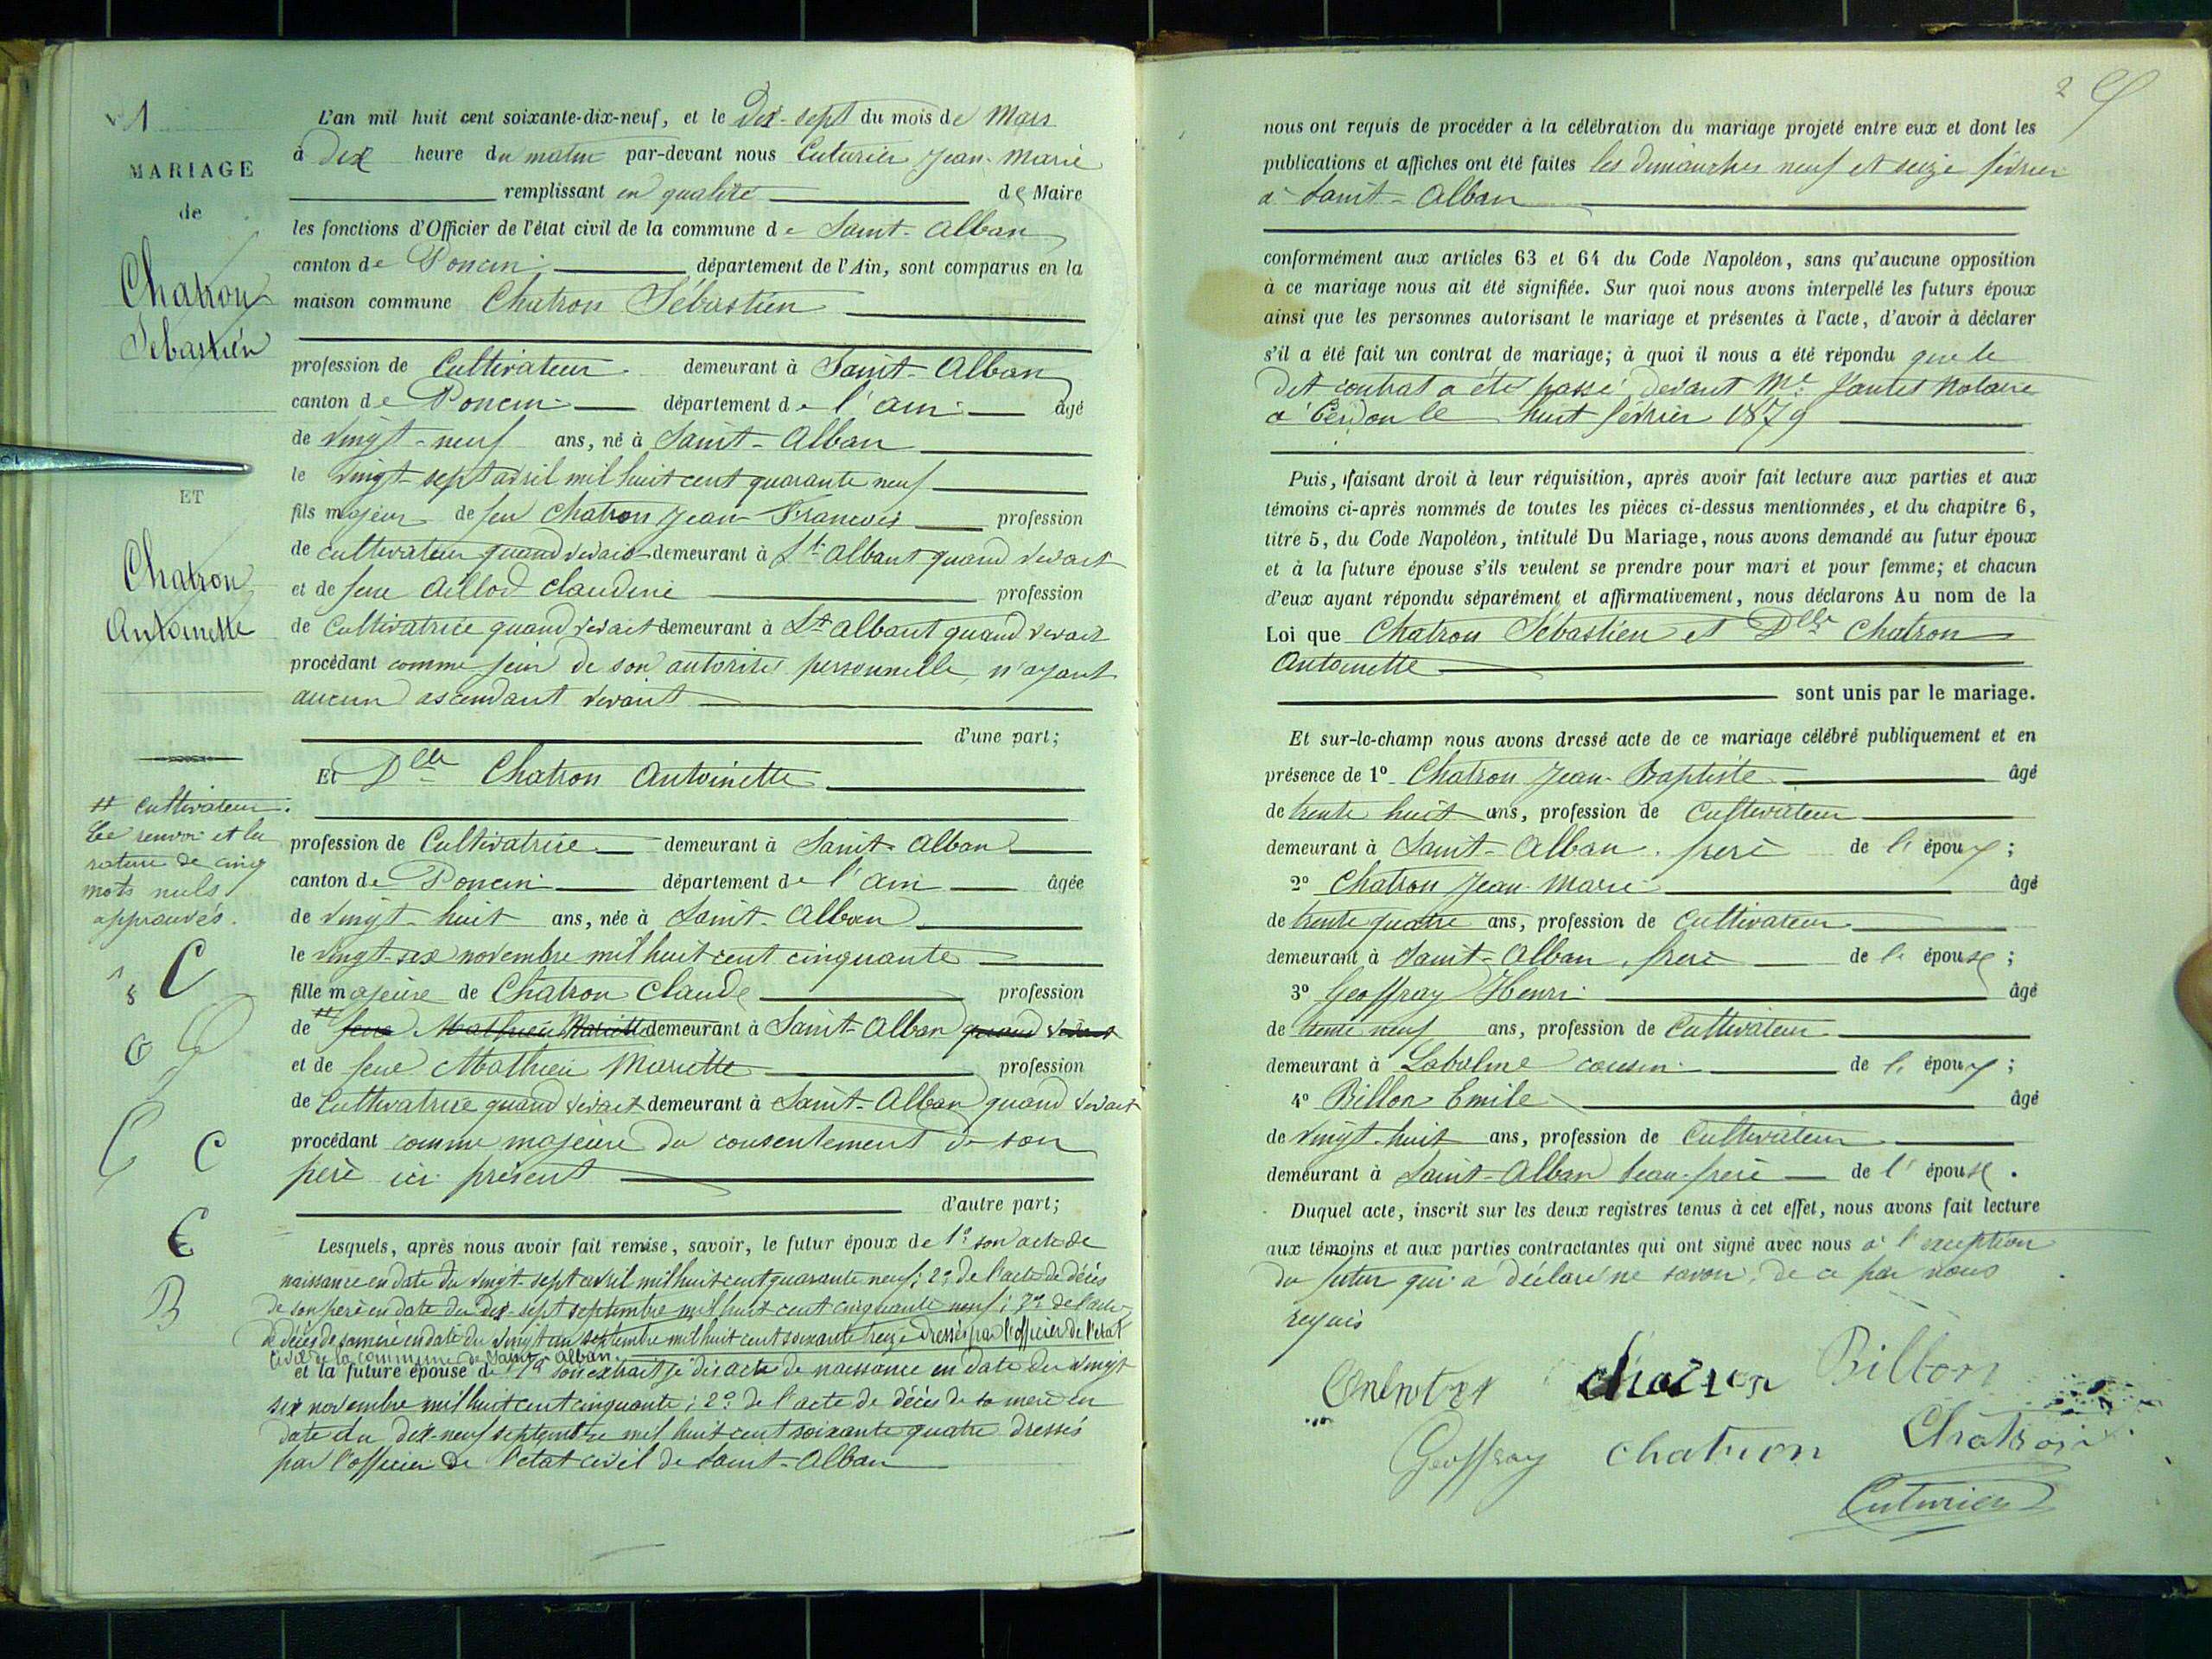 1
MARIAGE
de
Chatron
Sébastien
ET
Chatron
Antoinette
++ cultivateur.
Le renvoi et la
rature de cinq
mots nuls
approuvés.
C
G
C C
C
B
L'an mil huit cent soixante-dix-neuf, et le dix-sept du mois de Mars
à dix heure du matin par-devant nous Cuturier Jean-Marie
remplissant en qualité de Maire
les fonctions d'Officier de l'état civil de la commune de Saint-Alban
canton de Poncin département de l'Ain, sont comparus en la
maison commune Chatron Sébastien
profession de Cultivateur demeurant à Saint-Alban
canton de Poncin département de l'ain âgé
de vingt-neuf ans, né à Saint-Alban
le vingt-sept avril mil huit cent quarante neuf
fils majeur de feu Chatron Jean-Francois profession
de cultivateur quand vivait demeurant à St Albant quand vivait
et de feue Aillod Claudine profession
de Cultivatrice quand vivait demeurant à St Albant quand vivait
procédant comme jouir de son autorité personnelle, n'ayant
aucun ascendant vivant
d'une part;
Et Dlle Chatron Antoinette
profession de Cultivatrice demeurant à Saint-Alban
canton de Poncin département de l'ain âgée
de vingt-huit ans, née à Saint-Alban
le vingt-six novembre mil huit cent cinquante
fille majeure de Chatron Claude profession
de ++ feue Mathieu Mariette demeurant à Saint-Alban quand vivait
et de feue Mathieu Mariette profession
de Cultivatrice quand vivait demeurant à Saint-Alban quand vivait
procédant comme majeure du consentement de son
père ici présent
d'autre part;
Lesquels, après nous avoir fait remise, savoir, le futur époux de 1º son acte de
naissance en date du vingt-sept avril mil huit cent quarante neuf; 2º de l'acte de décès
de son père en date du dix-sept septembre mil huit cent cinquante neuf; 3º de l'acte
de décès de sa mère en date du vingt un septembre mil huit cent soixante treize dressés par l'officier de l'état
civil de la commune de Saint-Alban.
et la future épouse de 1º son extrait de acte de naissance en date du vingt
six novembre mil huit cent cinquante; 2º de l'acte de décès de sa mère en
date du dix-neuf septembre mil huit cent soixante quatre dressés
par l'officier de l'état civil de Saint-Alban
2
nous ont requis de procéder à la célébration du mariage projeté entre eux et dont les
publications et affiches ont été faites les dimanches neuf et seize février
à Saint-Alban
conformément aux articles 63 et 64 du Code Napoléon, sans qu'aucune opposition
à ce mariage nous ait été signifiée. Sur quoi nous avons interpellé les futurs époux
ainsi que les personnes autorisant le mariage et présentes à l'acte, d'avoir à déclarer
s'il a été fait un contrat de mariage; à quoi il nous a été répondu que le
dit contrat a été passé devant Me Notaire
à Cerdon le huit février 1879
Puis, faisant droit à leur réquisition, après avoir fait lecture aux parties et aux
témoins ci-après nommés de toutes les pièces ci-dessus mentionnées, et du chapitre 6,
titre 5, du Code Napoléon, intitulé Du Mariage, nous avons demandé au futur époux
et à la future épouse s'ils veulent se prendre pour mari et pour femme; et chacun
d'eux ayant répondu séparément et affirmativement, nous déclarons Au nom de la
Loi que Chatron Sébastien et Dlle Chatron
Antoinette
sont unis par le mariage.
Et sur-le-champ nous avons dressé acte de ce mariage célébré publiquement et en
présence de 1º Chatron Jean-Baptiste âgé
de trente huit ans, profession de Cultivateur
demeurant à Saint-Alban frère de l' époux;
2º Chatron Jean-Marie âgé
de trente quatre ans, profession de Cultivateur
demeurant à Saint-Alban, frère de l' épouse;
3º Geoffray Henri âgé
de trente neuf ans, profession de Cultivateur
demeurant à Labalme cousin de l' époux;
4º Billon Emile âgé
de vingt-huit ans, profession de Cultivateur
demeurant à Saint-Alban beau-frère de l' épouse.
Duquel acte, inscrit sur les deux registres tenus à cet effet, nous avons fait lecture
aux témoins et aux parties contractantes qui ont signé avec nous à l'exception
du futur qui a déclaré ne savoir, de ce par nous
requis
chatron Billon
Geoffray chatron Chatron
Cuturier